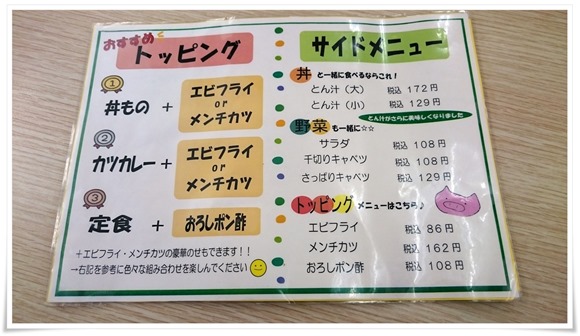 おすすめ
トッピング
1
丼もの + エビフライ or メンチカツ
2
カツカレー + エビフライ or メンチカツ
3
定食 + おろしポン酢
+エビフライ・メンチカツの豪華のせもできます!!
→右記を参考に色々な組み合わせを楽しんでください
サイドメニュー
丼 と一緒に食べるならこれ!
とん汁(大) 税込 172円
とん汁(小) 税込 129円
とん汁がさらに美味しくなりました
野菜 も一緒に☆☆
サラダ 税込 108円
千切りキャベツ 税込 108円
さっぱりキャベツ 税込 129円
トッピング メニューはこちら♪
エビフライ 税込 86円
メンチカツ 税込 162円
おろしポン酢 税込 108円